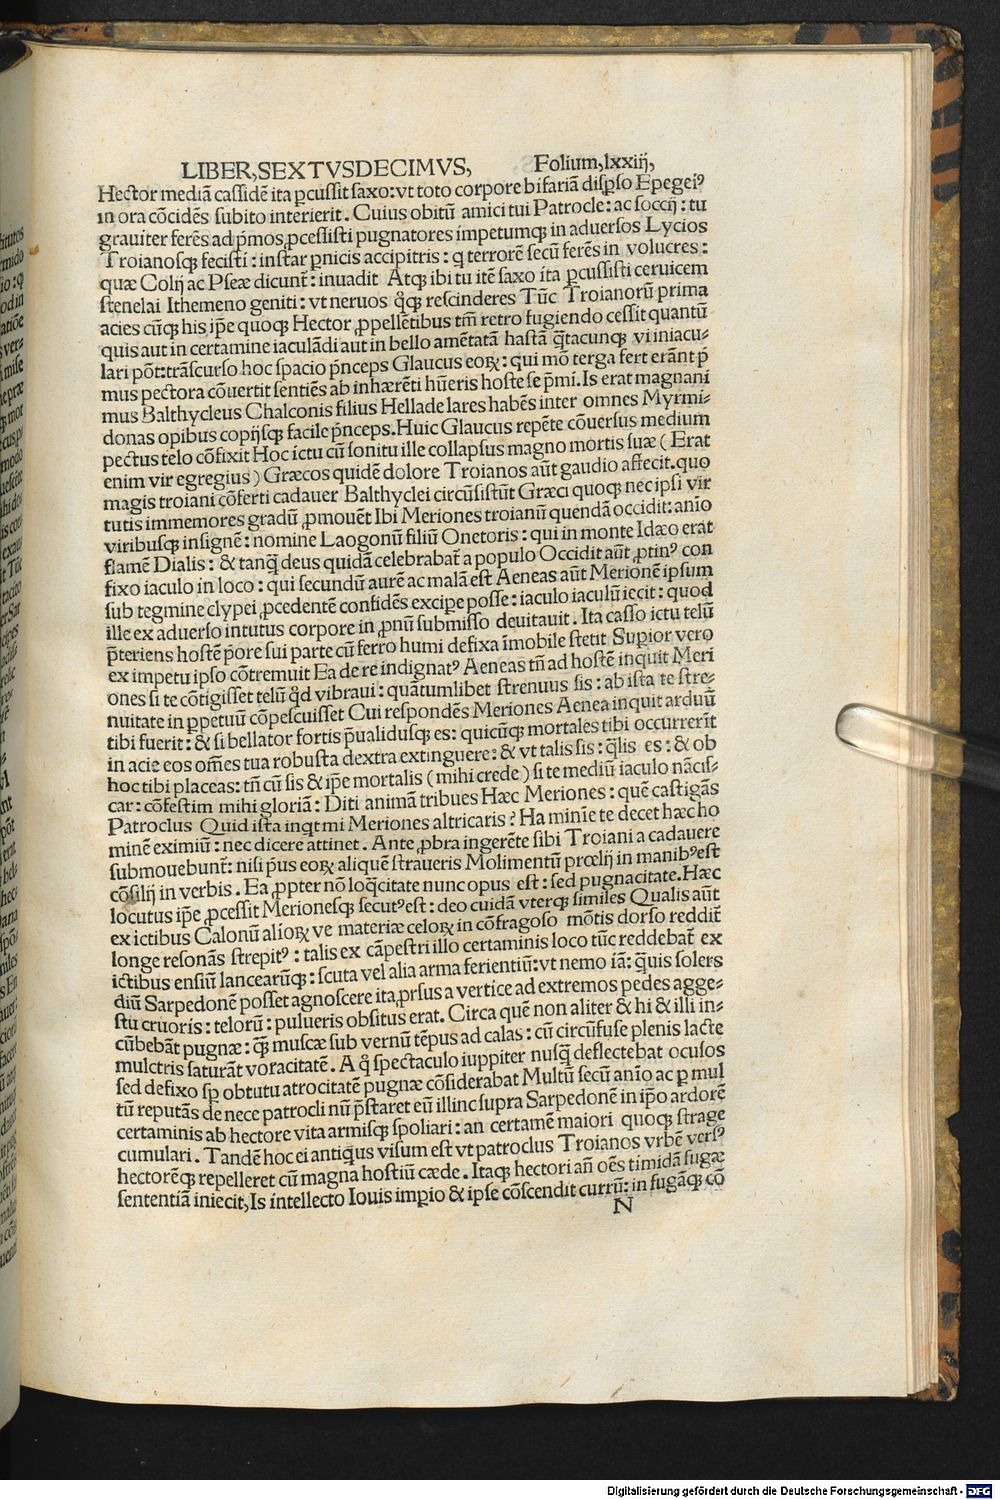 LIBER,SEXTVSDECIMVS, Folium,lxxiiij,
Hector mediā cassidē ita ꝑcussit saxo: vt toto corpore bifariā disꝑso Epegeiꝰ
in ora cōcidēs subito interierit. Cuius obitū amici tui Patrocle: ac socciȷ: tu
grauiter ferēs ad p̄mos ꝓcessisti pugnatores impetumqꝫ in aduersos Lycios
Troianosqꝫ fecisti: instar ꝑnicis accipitris: q terrorē secū ferēs in volucres:
quæ Colij ac Pseæ dicunt̄: inuadit Atqꝫ ibi tu itē saxo ita ꝑcussisti ceruicem
stenelai Ithemeno geniti: vt neruos q̊qꝫ rescinderes Tūc Troianorū prima
acies cūqꝫ his ip̄e quoqꝫ Hector ꝓpellētibus tm̄ retro fugiendo cessit quantū
quis aut in certamine iaculādi aut in bello amētatā hastā q̄tacunqꝫ vi iniacu⸗
lari pōt: trāscurso hoc spacio p̄nceps Glaucus eoꝝ: qui mō terga fert erānt p̄
mus pectora cōuertit sentiēs ab inhærēti hūeris hoste se p̄mi. Is erat magnani
mus Balthycleus Chalconis filius Hellade lares habēs inter omnes Myrmi⸗
donas opibus copijsqꝫ facile p̄nceps. Huic Glaucus repēte cōuersus medium
pectus telo cōfixit Hoc ictu cū sonitu ille collapsus magno mortis suæ (Erat
enim vir egregius) Græcos quidē dolore Troianos aūt gaudio affecit. quo
magis troiani cōferti cadauer Balthyclei circūsistūt Græci quoqꝫ nec ipsi vir
tutis immemores gradū ꝓmouēt Ibi Meriones troianū quendā occidit: anīo
viribusqꝫ insignē: nomine Laogonū filiū Onetoris: qui in monte Idæo erat
flamē Dialis: & tanq̄ deus quidā celebrabat̄ a populo Occidit aūt ꝓtinꝰ con
fixo iaculo in loco: qui secundū aurē ac malā est Aeneas aūt Merionē ipsum
sub tegmine clypei ꝓcedentē confidēs excipe posse: iaculo iaculū iecit: quod
ille ex aduerso intutus corpore in ꝓnū submisso deuitauit. Ita casso ictu telū
p̄teriens hostē p̄ore sui parte cū ferro humi defixa īmobile stetit Supior vero
ex impetu ipso cōtremuit Ea de re indignatꝰ Aeneas tn̄ ad hostē inquit Meri
ones si te cōtigisset telū q̊d vibraui: quātumlibet strenuus sis: ab ista te stre⸗
nuitate in ꝑpetuū cōpescuisset Cui respondēs Meriones Aenea inquit arduū
tibi fuerit: & si bellator fortis p̄ualidusqꝫ es: quicūqꝫ mortales tibi occurrerīt
in acie eos om̄es tua robusta dextra extinguere: & vt talis sis: q̄lis es: & ob
hoc tibi placeas: tn̄ cū sis & ip̄e mortalis (mihi crede) si te mediū iaculo nācis⸗
car: cōfestim mihi gloriā: Diti animā tribues Hæc Meriones: quē castigās
Patroclus Quid ista inqt mi Meriones altricaris? Ha minīe te decet hæc ho
minē eximiū: nec dicere attinet. Ante ꝓbra ingerēte sibi Troiani a cadauere
submouebunt̄: nisi p̄us eoꝝ aliquē straueris Molimentū prœlij in manibꝰ est
cōsilij in verbis. Ea ꝓpter nō loq̄citate nunc opus est: sed pugnacitate. Hæc
locutus ip̄e ꝓcessit Merionesqꝫ secutꝰ est: deo cuidā vterqꝫ similes Qualis aūt
ex ictibus Calonū alioꝝ ve materiæ celoꝝ in cōfragoso mōtis dorso reddit̄
longe resonās strepitꝰ: talis ex cāpestri illo certaminis loco tūc reddebat̄ ex
ictibus ensiū lancearūqꝫ: scuta vel alia arma ferientiū: vt nemo iā: q̄uis solers
diū Sarpedonē posset agnoscere ita ꝓrsus a vertice ad extremos pedes agge⸗
stu cruoris: telorū: pulueris obsitus erat. Circa quē non aliter & hi & illi in⸗
cūbebāt pugnæ: q̄ꝫ muscæ sub vernū tēpus ad calas: cū circūfuse plenis lacte
mulctris saturāt voracitatē. A q̊ spectaculo iuppiter nusq̄ deflectebat oculos
sed defixo sꝑ obtutu atrocitatē pugnæ cōsiderabat Multū secū anīo ac ꝑ mul
tū reputās de nece patrocli nū p̄staret eū illinc supra Sarpedonē in ip̄o ardorē
certaminis ab hectore vita armisqꝫ spoliari: an certamē maiori quoqꝫ strage
cumulari. Tandē hoc ei antiq̊us visum est vt patroclus Troianos vrbē versꝰ
hectorēqꝫ repelleret cū magna hostiū cæde. Itaqꝫ hectori an̄ oēs timidā fugæ
sententiā iniecit, Is intellecto Iouis imꝑio & ipse cōscendit currū: in fugāqꝫ cō
N
Digitalisierung gefördert durch die Deutsche Forschungsgemeinschaft - DFG